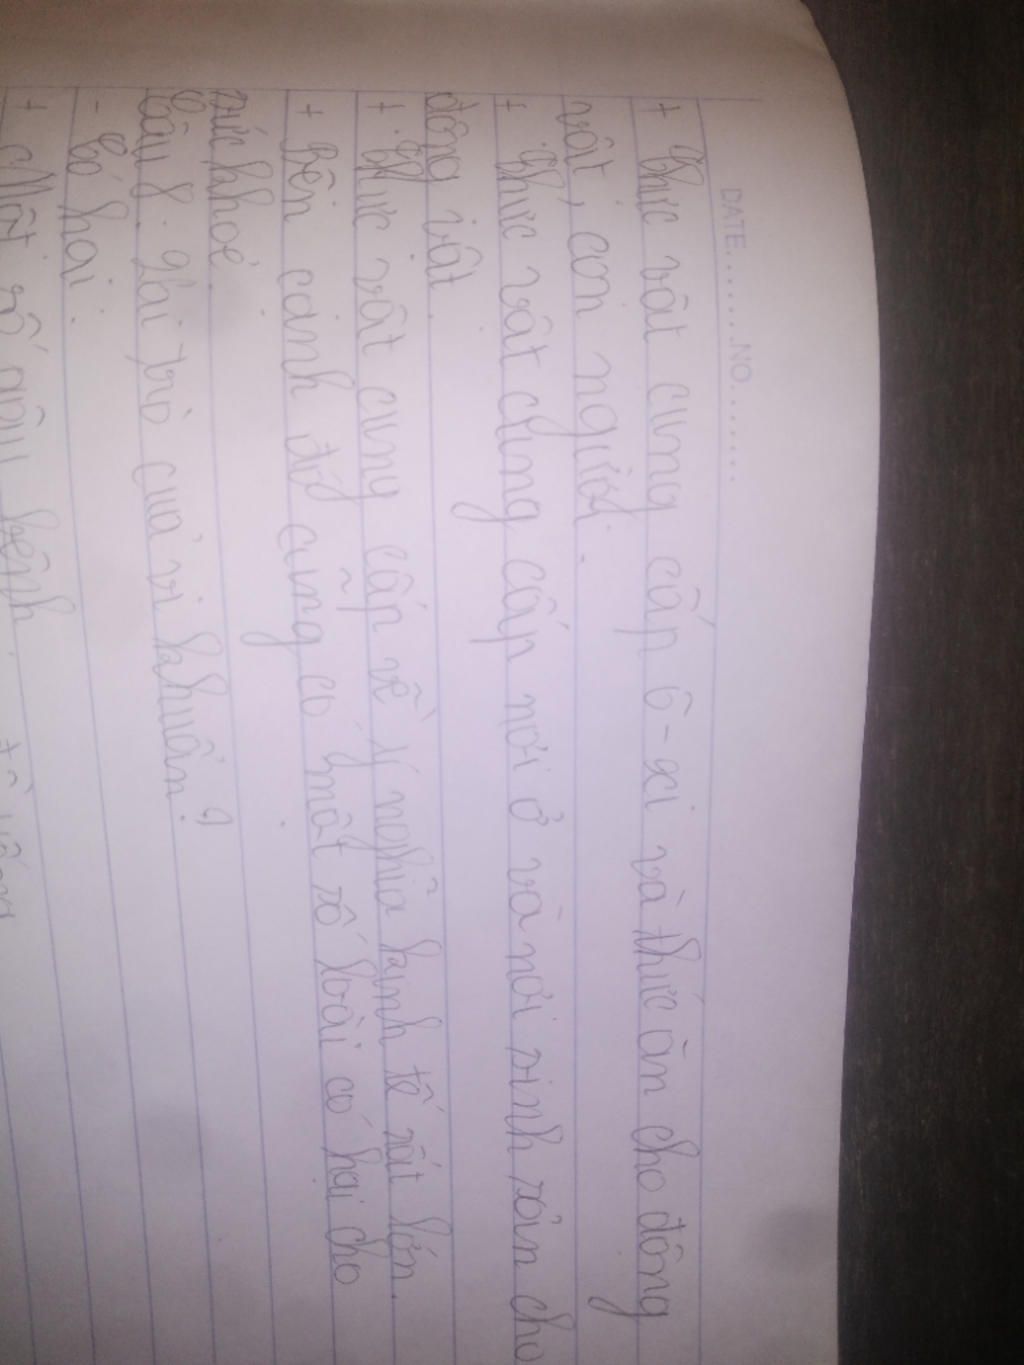 DATE.........NO.........
+ Thực vật cung cấp ô-xi và thức ăn cho động
vật, con người.
+ Thực vật cung cấp nơi ở và nơi sinh sản cho
động vật.
+ Thực vật cung cấp về ý nghĩa kinh tế rất lớn.
+ Bên cạnh đó cũng có một số loài có hại cho
sức khoẻ.
Câu 8: Vai trò của vi khuẩn?
- Có hại:
+ Một số gây bệnh